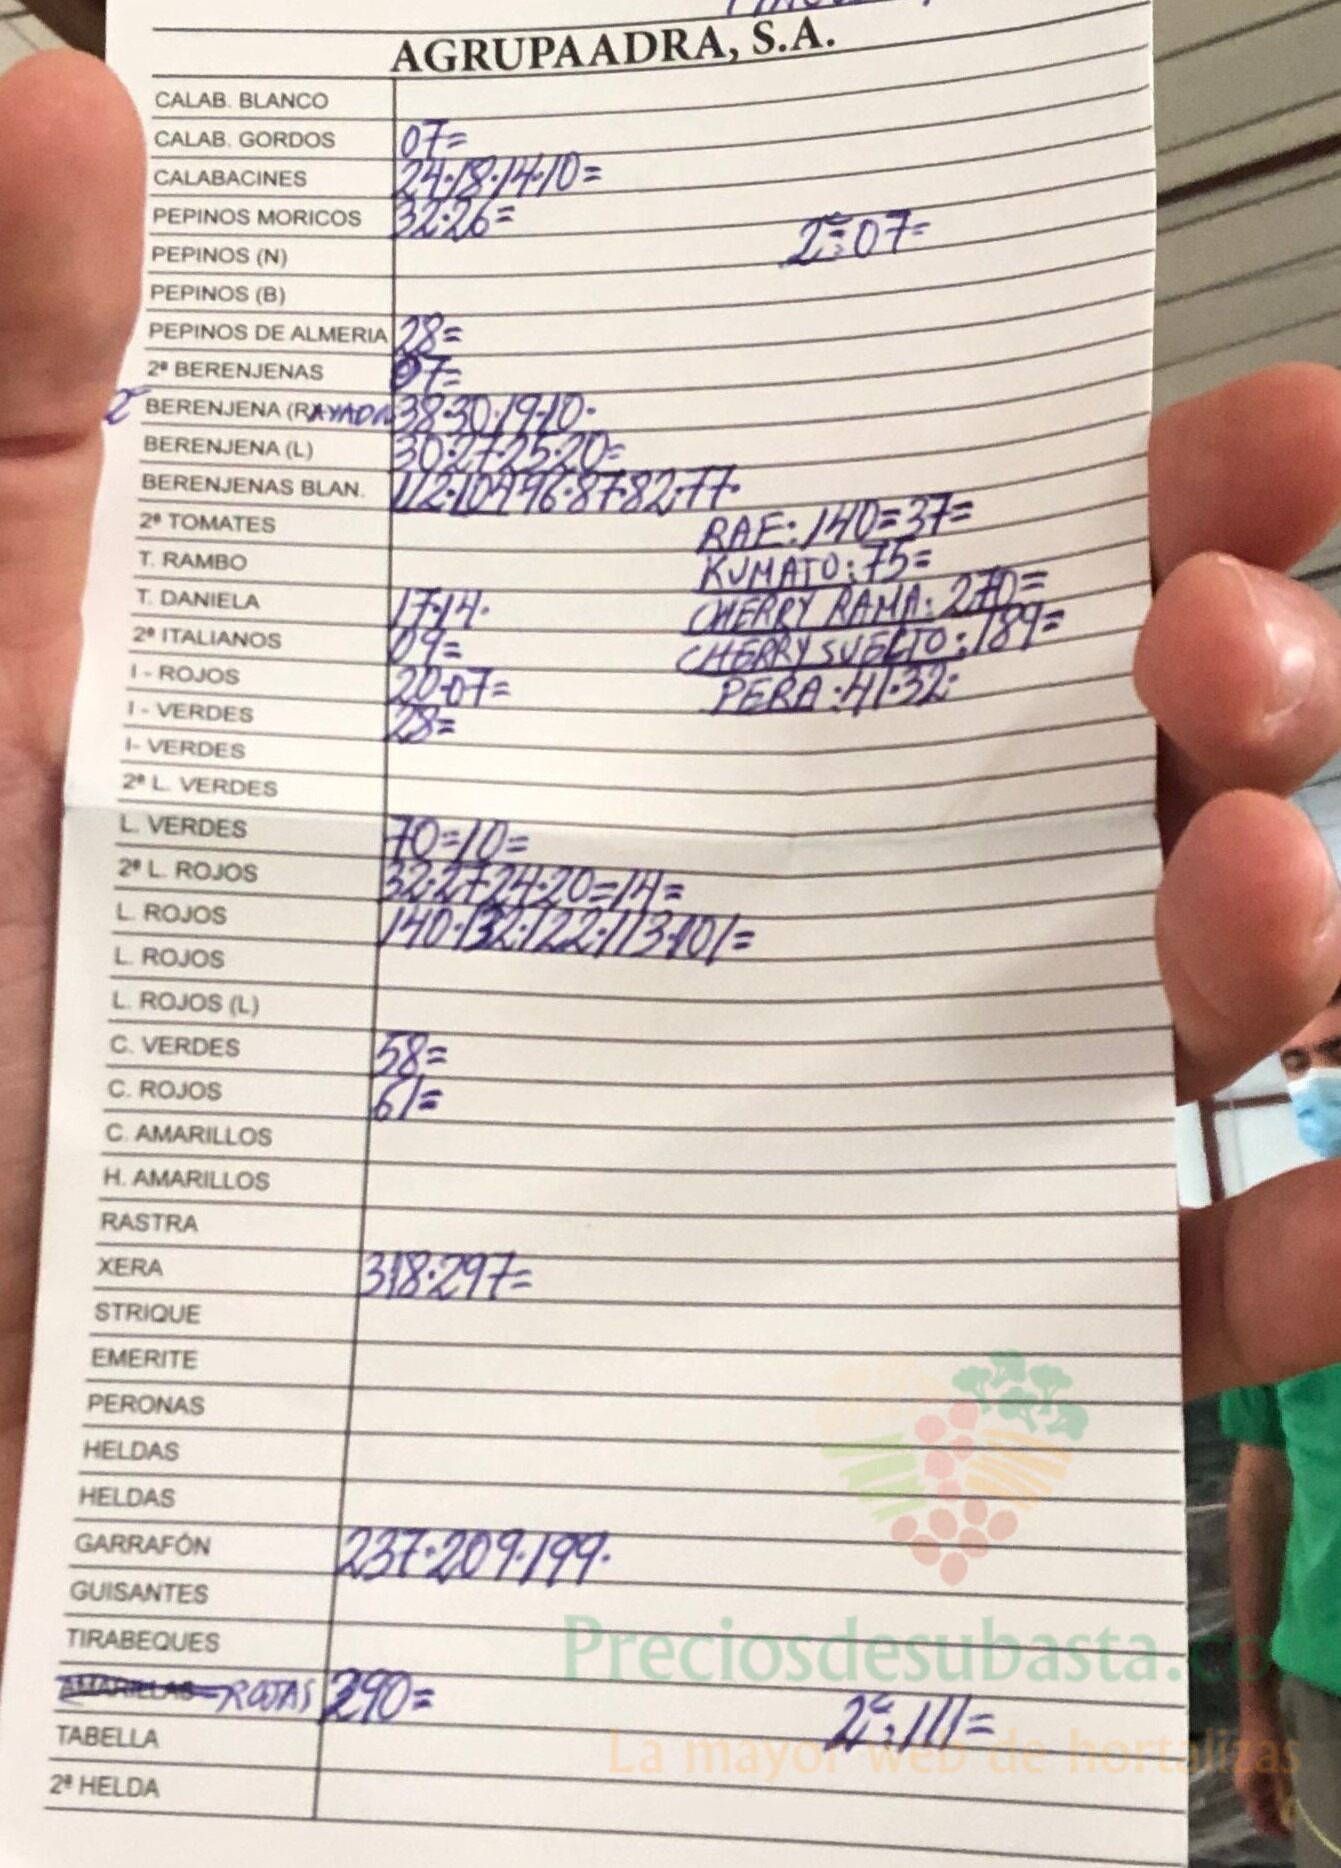 AGRUPAADRA, S.A.
CALAB. BLANCO
CALAB. GORDOS 07=
CALABACINES 24·18·14·10=
PEPINOS MORICOS 32·26=
2ª:07=
PEPINOS (N)
PEPINOS (B)
PEPINOS DE ALMERIA 28=
2ª BERENJENAS 07=
BERENJENA (RAYADA 38·30·19·10·
BERENJENA (L) 30·27·25·20=
BERENJENAS BLAN. 112·104·96·87·82·77·
2ª TOMATES RAF: 140=37=
T. RAMBO KUMATO: 75=
T. DANIELA 17·14· CHERRY RAMA: 270=
2ª ITALIANOS 09= CHERRY SUELTO: 189=
I - ROJOS 20·07= PERA: 41·32·
I - VERDES 28=
I- VERDES
2ª L. VERDES
L. VERDES 70=10=
2ª L. ROJOS 32·27·24·20=14=
L. ROJOS 140·132·122·113·101=
L. ROJOS
L. ROJOS (L)
C. VERDES 58=
C. ROJOS 61=
C. AMARILLOS
H. AMARILLOS
RASTRA
XERA 318·297=
STRIQUE
EMERITE
PERONAS
HELDAS
HELDAS
GARRAFÓN 237·209·199·
GUISANTES
TIRABEQUES
Preciosdesubasta.co
AMARILLAS ROJAS 290= 2ª: 111=
TABELLA
La mayor web de hortalizas
2ª HELDA